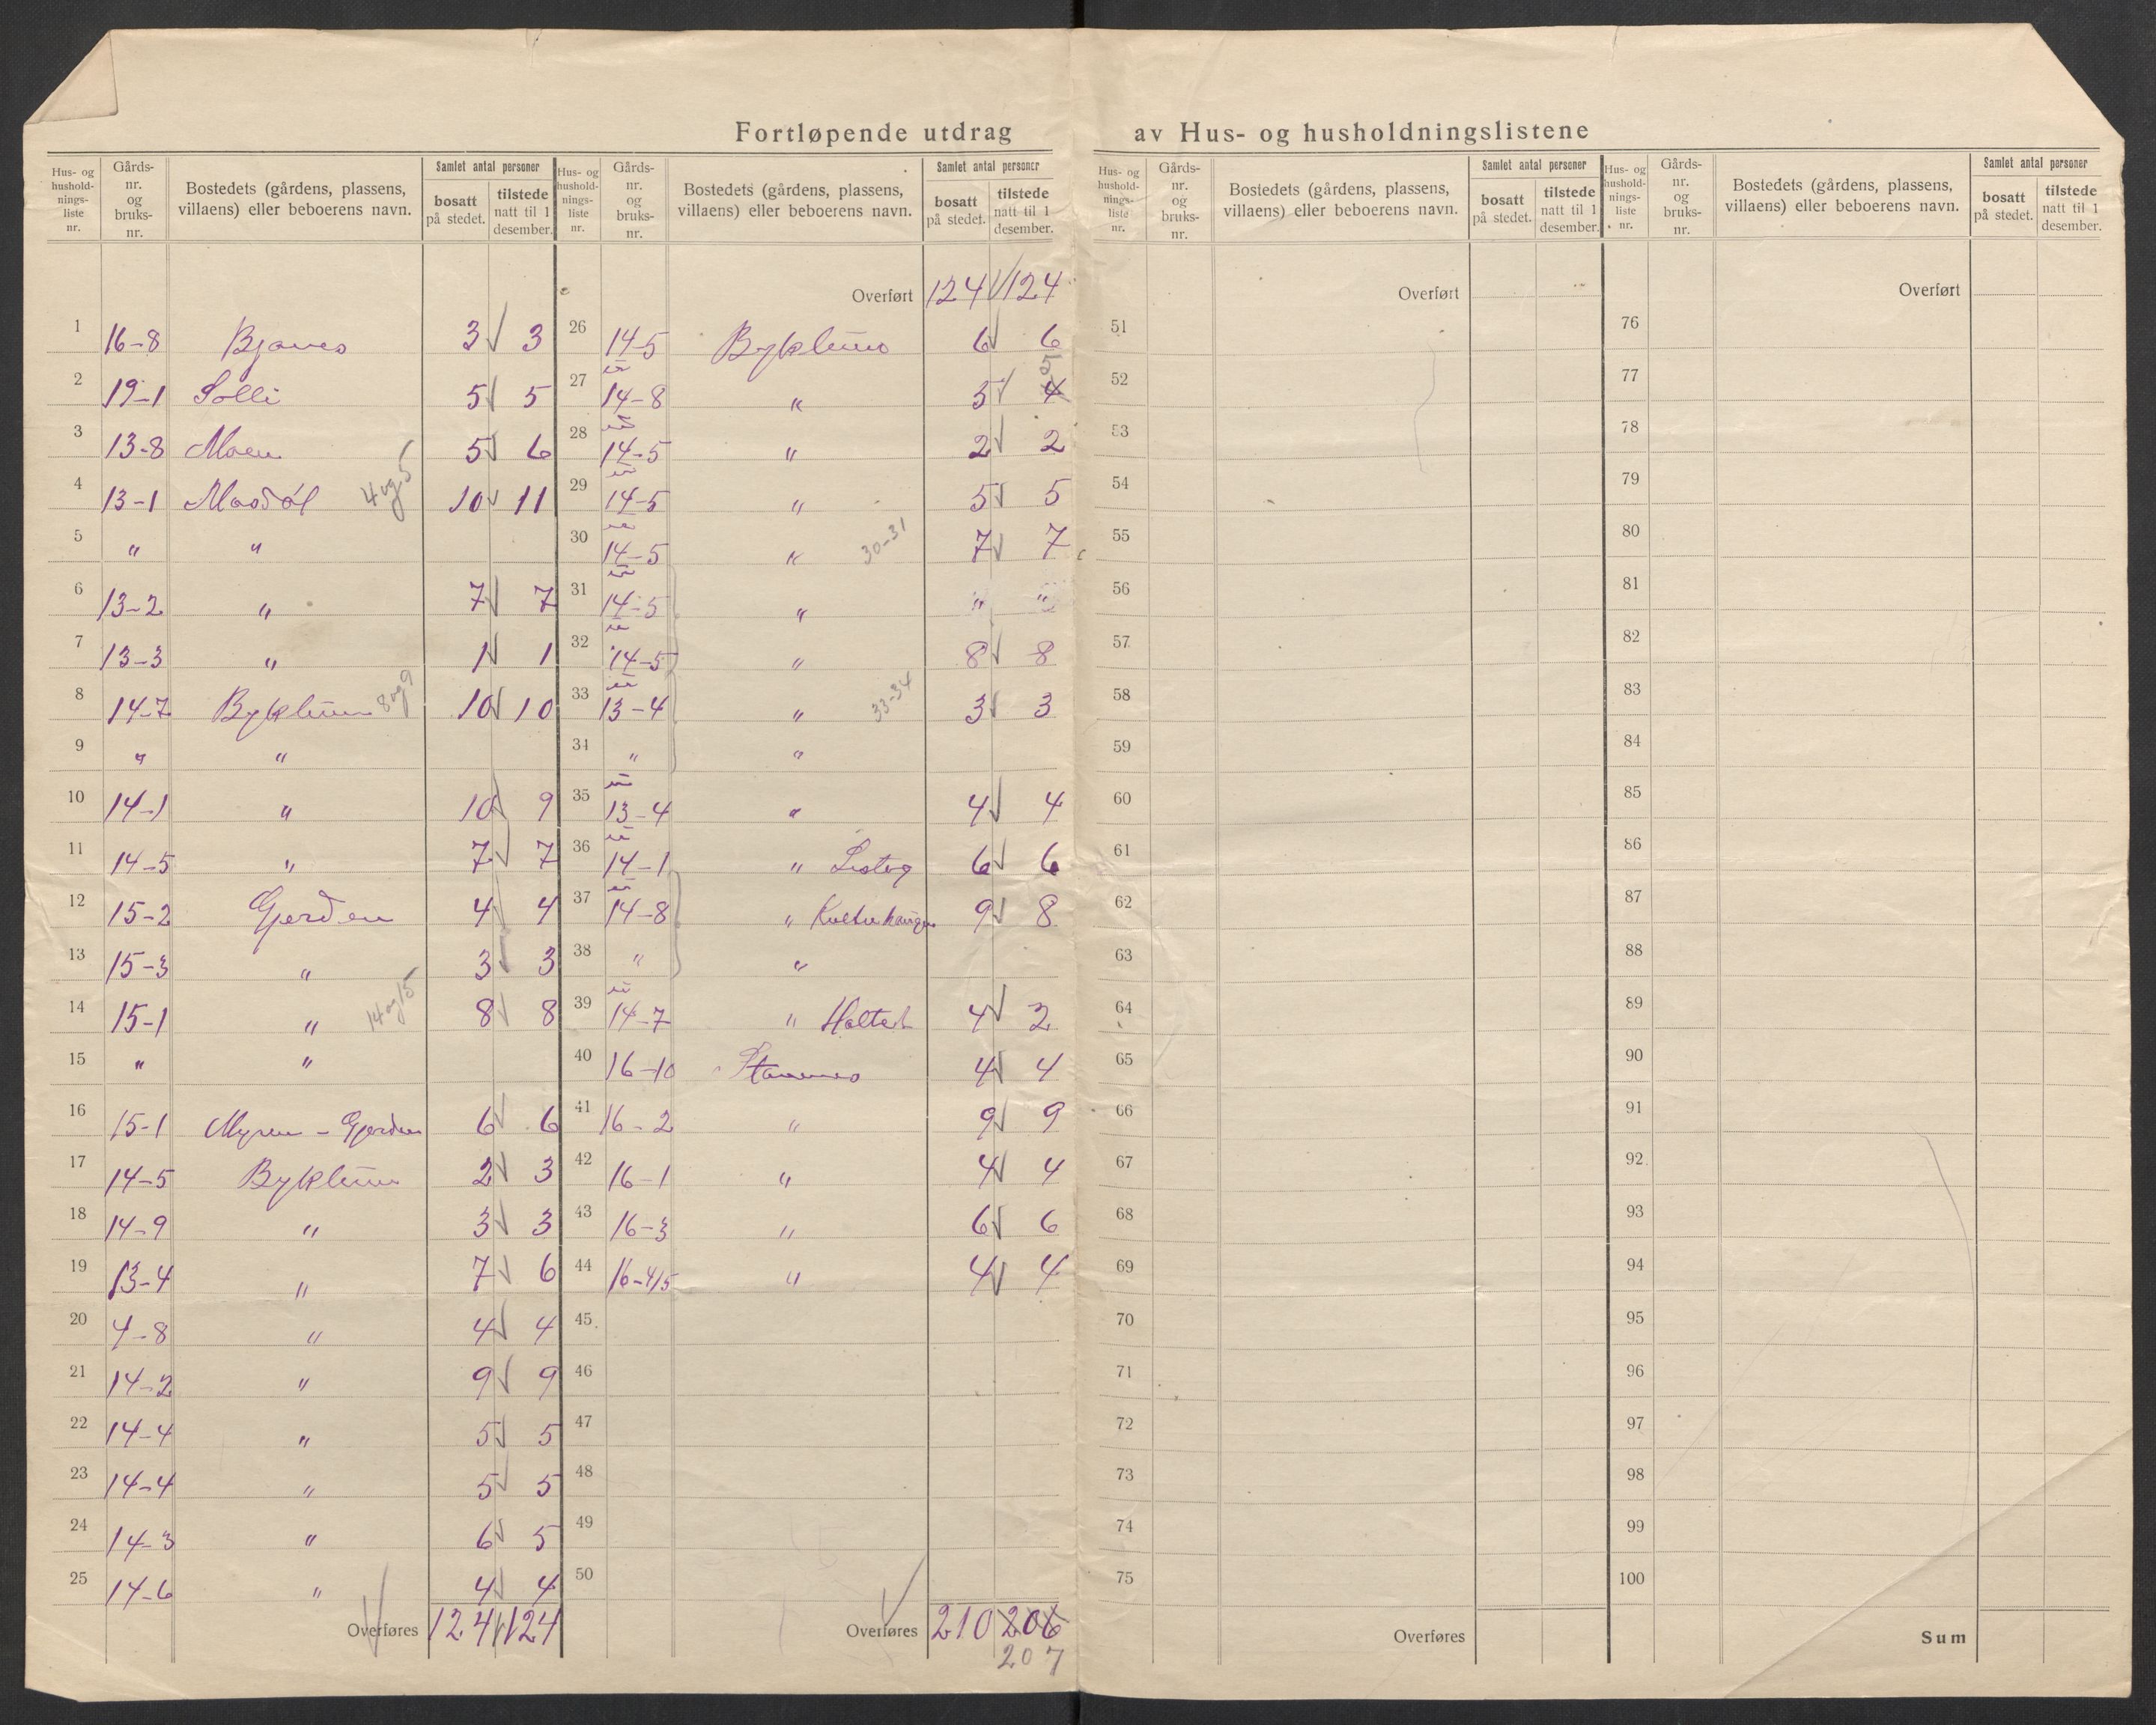 Fortløpende utdrag av Hus- og husholdningslistene
Hus- og hushold-nings-liste nr. Gårds-nr. og bruks-nr. Bostedets (gårdens, plassens, villaens) eller beboerens navn. Samlet antal personer bosatt på stedet. tilstede natt til 1 desember.
1 16-8 Bjanes 3 √ 3
2 19-1 Solli 5 √ 5
3 13-8 Moen 5 √ 6
4 13-1 4 og 5 10 √ 11
5 " "
6 13-2 " 7 √ 7
7 13-3 " 1 √ 1
8 14-7 Byklum 8 og 9 10 √ 10
9 " "
10 14-1 " 10 √ 9
11 14-5 " 7 √ 7
12 15-2 Gjerden 4 √ 4
13 15-3 " 3 √ 3
14 15-1 " 14 og 15 8 √ 8
15 " "
16 15-1 Myren - Gjerden 6 √ 6
17 14-5 Byklum 2 √ 3
18 14-9 " 3 √ 3
19 13-4 " 7 √ 6
20 4-8 " 4 √ 4
21 14-2 " 9 √ 9
22 14-4 " 5 √ 5
23 14-4 " 5 √ 5
24 14-3 " 6 √ 5
25 14-6 " 4 √ 4
Overføres 124 √ 124
Hus- og hushold-nings-liste nr. Gårds-nr. og bruks-nr. Bostedets (gårdens, plassens, villaens) eller beboerens navn. Samlet antal personer bosatt på stedet. tilstede natt til 1 desember.
Overført 124 √ 124
26 14-5 Byklum 6 √ 6
27 14-8 " 5 √ 4 5
28 14-5 " 2 √ 2
29 14-5 " 5 √ 5
30 14-5 " 30-31 7 √ 7
31 14-5 " " "
32 14-5 " 8 √ 8
33 13-4 " 33-34 3 √ 3
34 " "
35 13-4 " 4 √ 4
36 14-1 " 6 √ 6
37 14-8 " 9 √ 8
38 " "
39 14-7 " 4 √ 2
40 16-10 4 √ 4
41 16-2 " 9 √ 9
42 16-1 " 4 √ 4
43 16-3 " 6 √ 6
44 16-4/5 " 4 √ 4
45
46
47
48
49
50
Overføres 210 206
207
Hus- og hushold-nings-liste nr. Gårds-nr. og bruks-nr. Bostedets (gårdens, plassens, villaens) eller beboerens navn. Samlet antal personer bosatt på stedet. tilstede natt til 1 desember.
Overført
51
52
53
54
55
56
57
58
59
60
61
62
63
64
65
66
67
68
69
70
71
72
73
74
75
Overføres
Hus- og hushold-nings-liste nr. Gårds-nr. og bruks-nr. Bostedets (gårdens, plassens, villaens) eller beboerens navn. Samlet antal personer bosatt på stedet. tilstede natt til 1 desember.
Overført
76
77
78
79
80
81
82
83
84
85
86
87
88
89
90
91
92
93
94
95
96
97
98
99
100
Sum